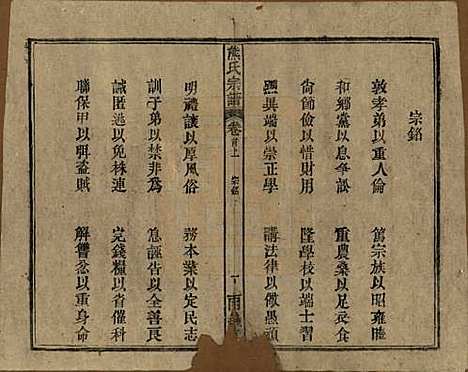 宗銘
敦孝弟以重人倫 篤宗族以昭雍睦
和鄉黨以息爭訟 重農桑以足衣食
尙節儉以惜財用 隆學校以端士習
黜異端以崇正學 講法律以儆愚頑
熊氏宗譜 卷首上 宗銘
明禮讓以厚風俗 務本業以定民志
訓子弟以禁非為 息誣告以全善良
誡匿逃以免株連 完錢糧以省催科
聯保甲以弭盜賊 解讐忿以重身命